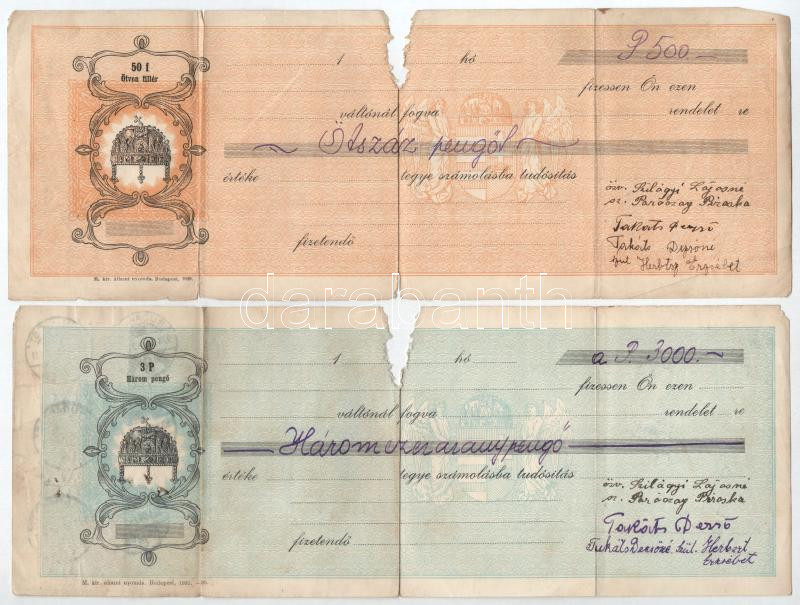 50 f
Ötven fillér
1 hó P 500.—
fizessen Ön ezen
váltónál fogva rendelet re
Ötszáz pengőt
értéke tegye számolásba tudósitás
özv. Szilágyi Lajosné
sz. Paróczay Piroska
Takáts Dezső
Takáts Dezsőné
fizetendő
Herbszt Erzsébet
M. kir. állami nyomda. Budapest,
darabanth
3 P
Három pengő
1 hó a P. 3000.—
fizessen Ön ezen
váltónál fogva rendelet re
Háromezer aranypengő
értéke tegye számolásba tudósitás
özv. Szilágyi Lajosné
sz. Paróczay Piroska
Takáts Dezső
fizetendő
Takáts Dezsőné szül. Herbszt
Erzsébet
M. kir. állami nyomda. Budapest,